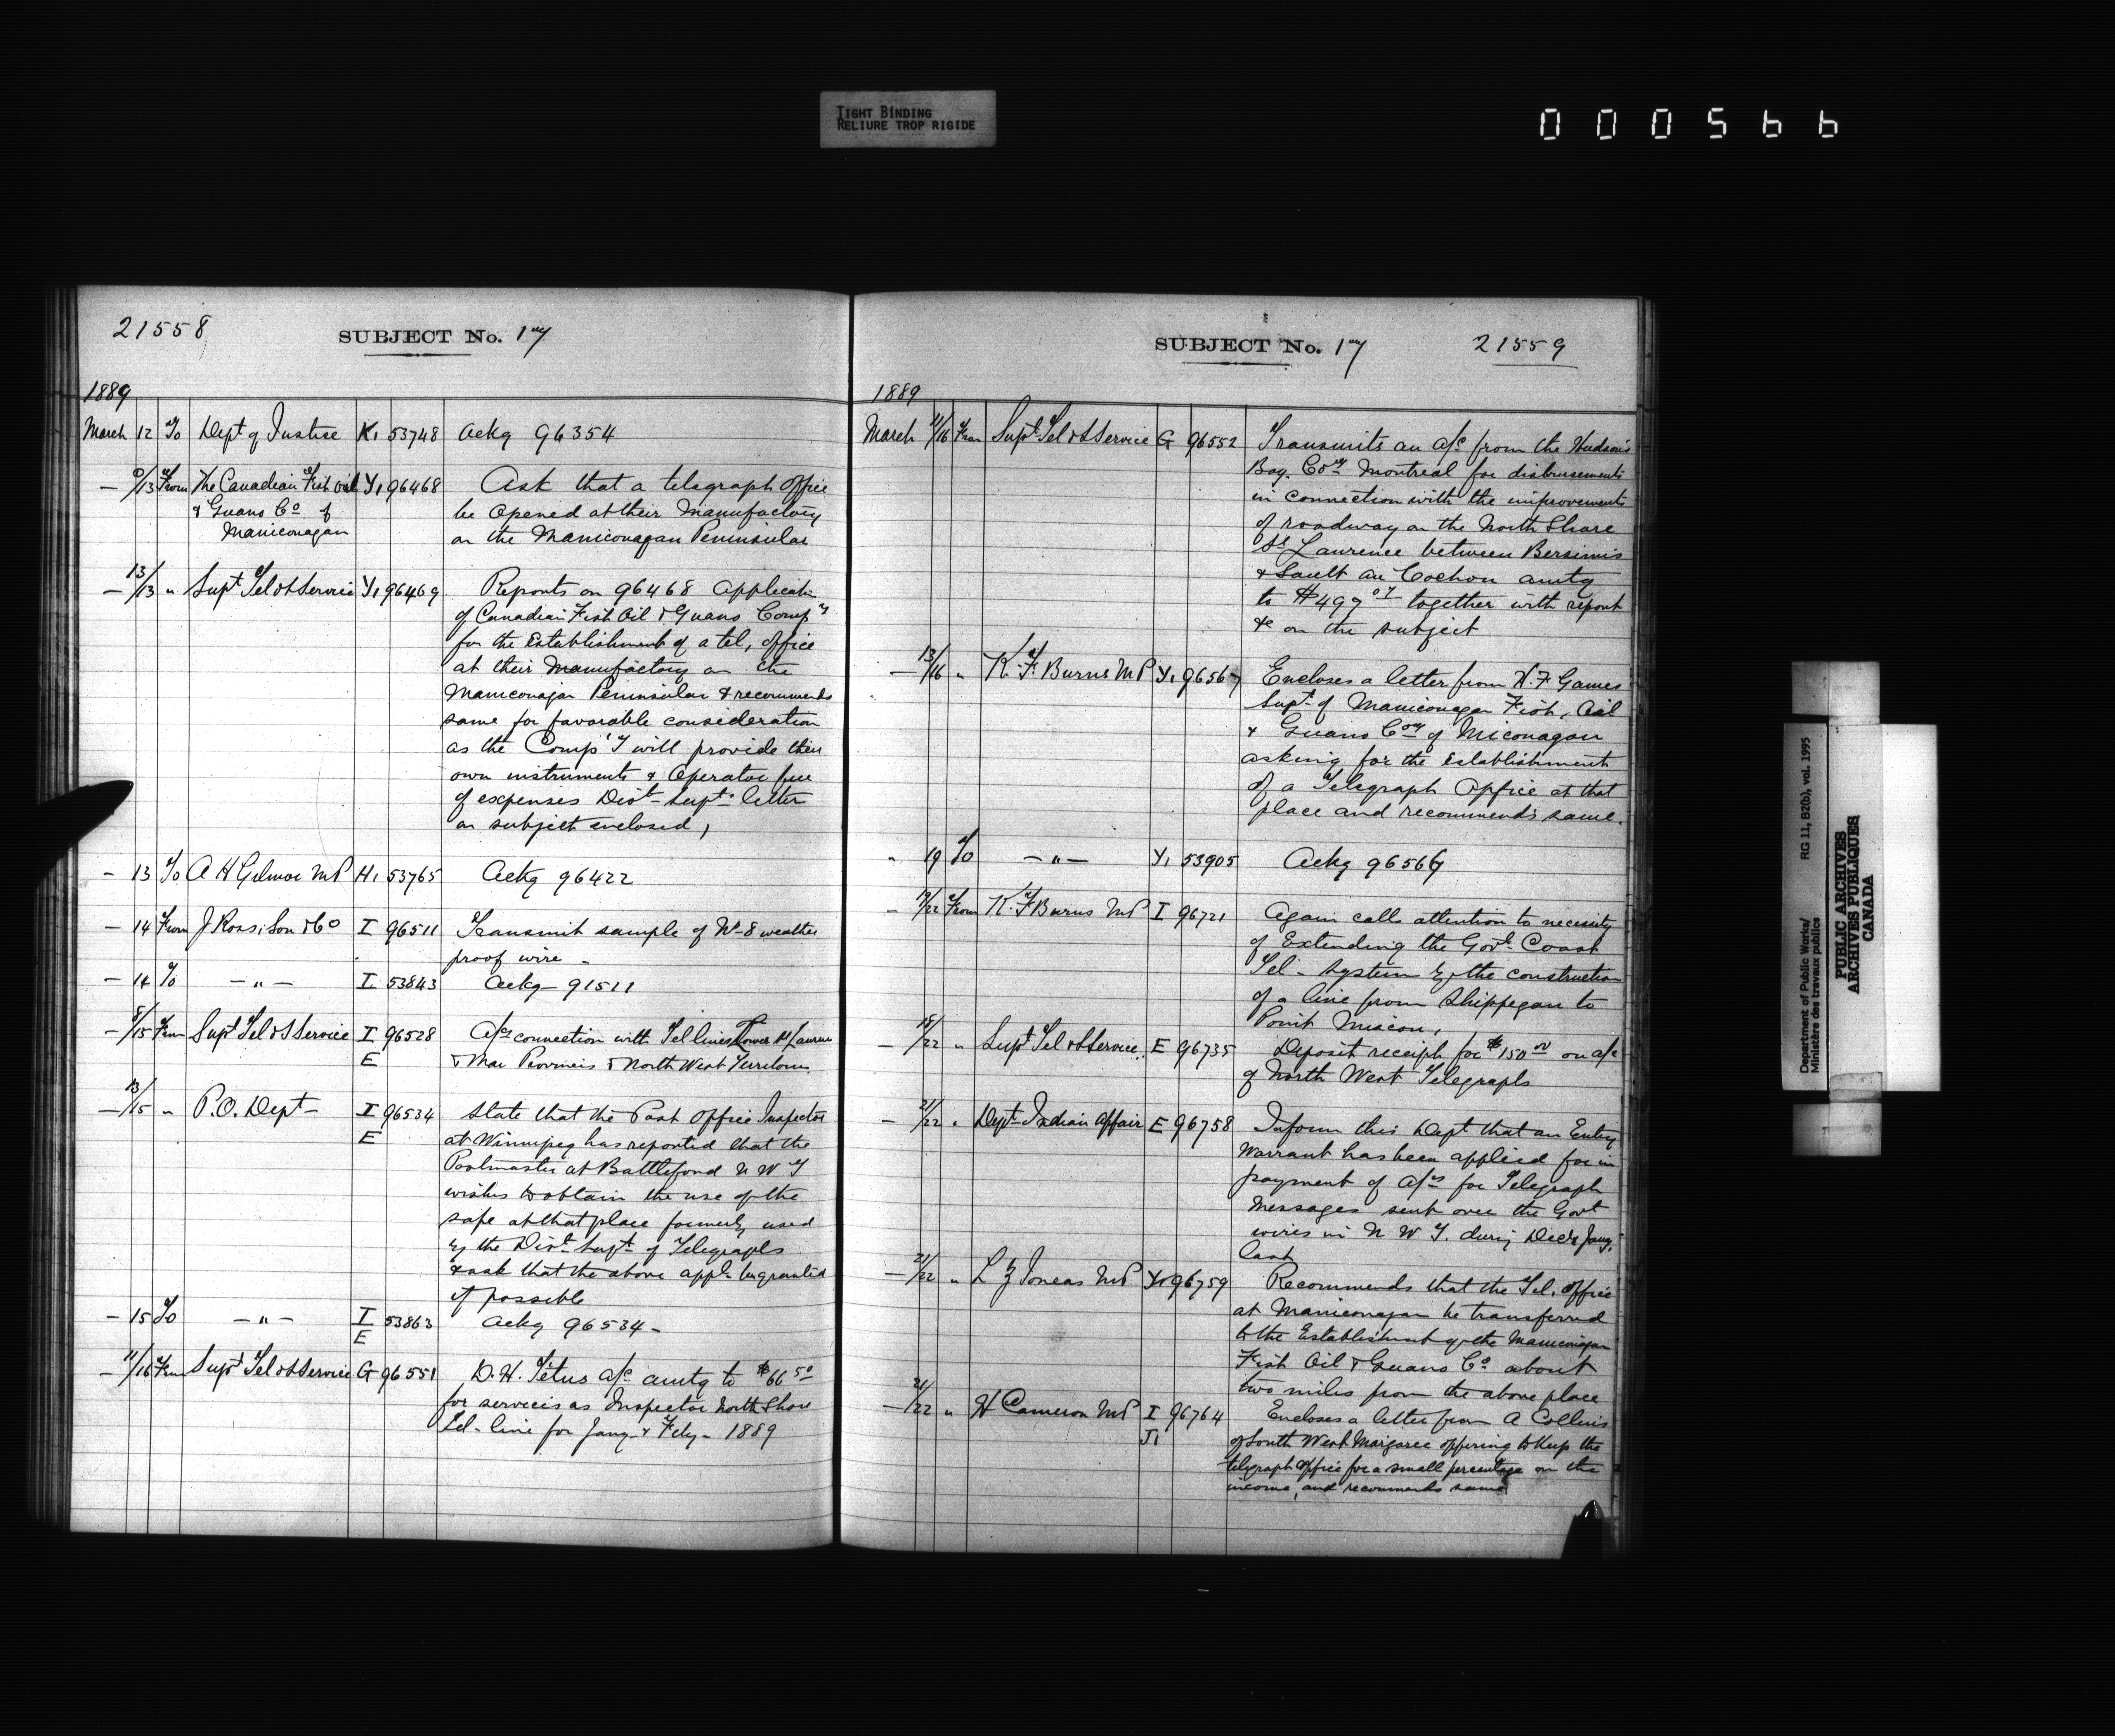 TIGHT BINDING
RELIURE TROP RIGIDE
000566
21558
SUBJECT No. 17
1889
March 12 To Dept of Justice K1 53748 Ackg 96354
— 9/13 From The Canadian Fish Oil Y1 96468 Ask that a telegraph Office
& Guano Co of be opened at their Manufactory
Manicouagan on the Manicouagan Peninsular
— 13/13 " Supt Tel & S Service Y1 96469 Reports on 96468 Applicatn
of Canadian Fish Oil & Guano Comp'y
for the Establishment of a tel, office
at their Manufactory on the
Manicouagan Peninsular & recommends
same for favorable consideration
as the Comp'y will provide their
own instruments & Operator free
of expenses Dist Supts letter
on subject enclosed,
— 13 To A H Gilmor MP H1 53765 Ackg 96422
— 14 From J Ross, Son & Co I 96511 Transmit sample of No 8 weather
proof wire -
— 14 To — " — I 53843 Ackg 91511
— 8/15 From Supt Tel & S Service I 96528 A/cs connection with Tel lines Lower St Laurence
E & Mar Provinces & North West Territories
— 13/15 " P.O. Dept - I 96534 State that the Post Office Inspector
E at Winnipeg has reported that the
Postmaster at Battleford N W T
wishes to obtain the use of the
safe at that place formerly used
by the Dist Supt of Telegraphs
& ask that the above appln be granted
if possible
— 15 To — " — I 53863 Ackg 96534 -
E
— 11/16 From Supt Tel & S Service G 96551 D. H. Tetus a/c amtg to $66 50
for services as Inspector North Shore
Tel - line for Jany & Feby - 1889
SUBJECT No. 17
21559
1889
March 11/16 From Supt Tel & S Service G 96552 Transmits an a/c from the Hudson's
Bay. Coy Montreal for disbursements
in connection with the improvements
of roadway on the North Shore
St Lawrence between Bersimis
& Sault au Cochon amtg
to $497 07 together with report
&c on the subject
— 13/16 " K. F. Burns MP Y1 96567 Encloses a letter from H. F Games
Supt of Manicouagan Fish, Oil
& Guano Coy of Miconagan
asking for the establishment
of a Telegraph Office at that
place and recommends same.
" 19 To — " — Y1 53905 Ackg 96567
— 19/22 From K. F Burns MP I 96721 Again calls attention to necessity
of Extending the Govt Coast
Tel - System by the construction
of a line from Shippegan to
Point Miscou,
— 18/22 " Supt Tel & S Service. E 96735 Deposit receipt for $150 00 on a/c
of North West Telegraphs
— 21/22 " Dept Indian Affair E 96758 Inform this Dept that an Entry
Warrant has been applied for in
payment of a/cs for Telegraph
Messages sent over the Govt
wires in N W T. during Dec & Jany,
last
— 21/22 " L Z Joncas MP Y1 96759 Recommends that the Tel. office
at Manicouagan be transferred
to the Establishment of the Manicouagan
Fish Oil & Guano Co about
two miles from the above place
— 21/22 " H Cameron MP I 96764 Encloses a letter from A Collins
J1 of South West Margaree offering to Keep the
telegraph office for a small percentage on the
income, and recommends same
Department of Public Works/
Ministère des travaux publics
RG 11, B2(b), vol. 1995
PUBLIC ARCHIVES
ARCHIVES PUBLIQUES
CANADA